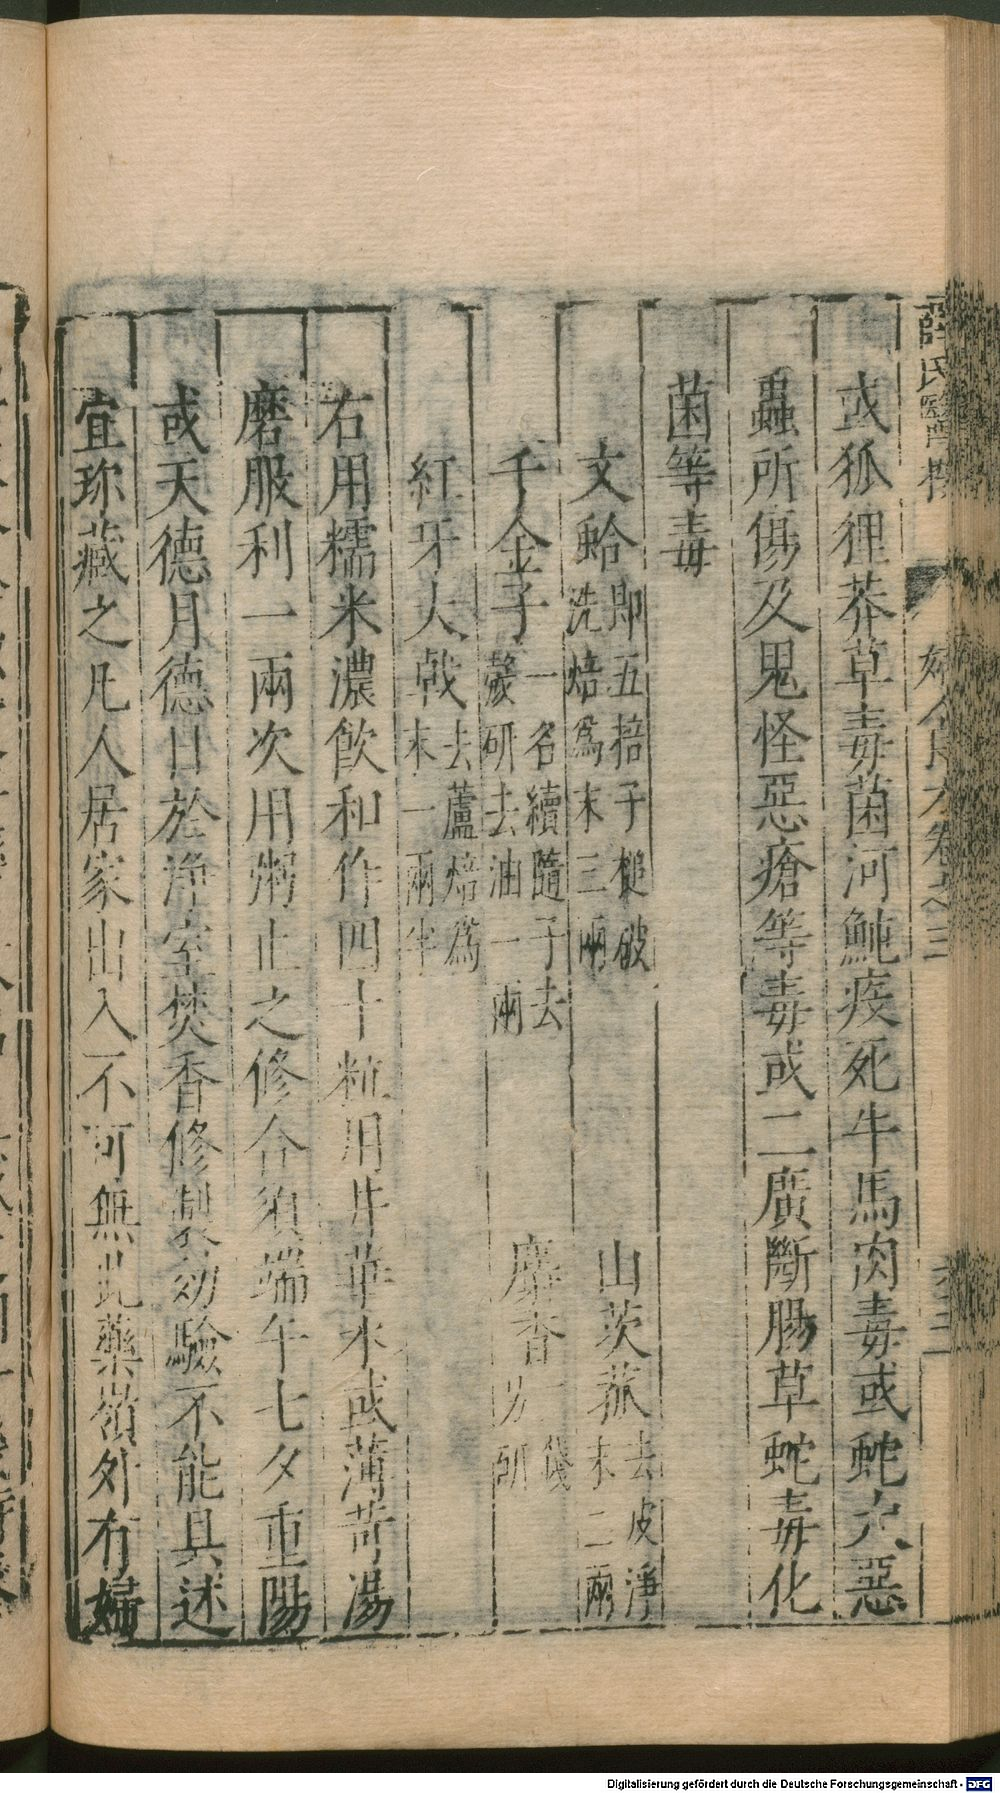 或狐狸莽草毒菌河魨疫死牛馬肉毒或蛇犬惡
蟲所傷及鬼怪惡瘡等毒或二廣斷腸草蛇毒化
菌等毒
文蛤即五棓子槌破洗焙爲末三兩 山茨菰去皮淨末二兩
千金子一名續隨子去殼研去油一兩 麝香一錢另研
紅牙大戟去蘆焙爲末一兩半
右用糯米濃飲和作四十粒用井華水或薄荷湯
磨服利一兩次用粥止之修合須端午七夕重陽
或天德月德日於淨室焚香修製効驗不能具述
宜珎藏之凡人居家出入不可無此藥嶺外有婦
薛氏醫 婦人良方卷之三
Digitalisierung gefördert durch die Deutsche Forschungsgemeinschaft - DFG